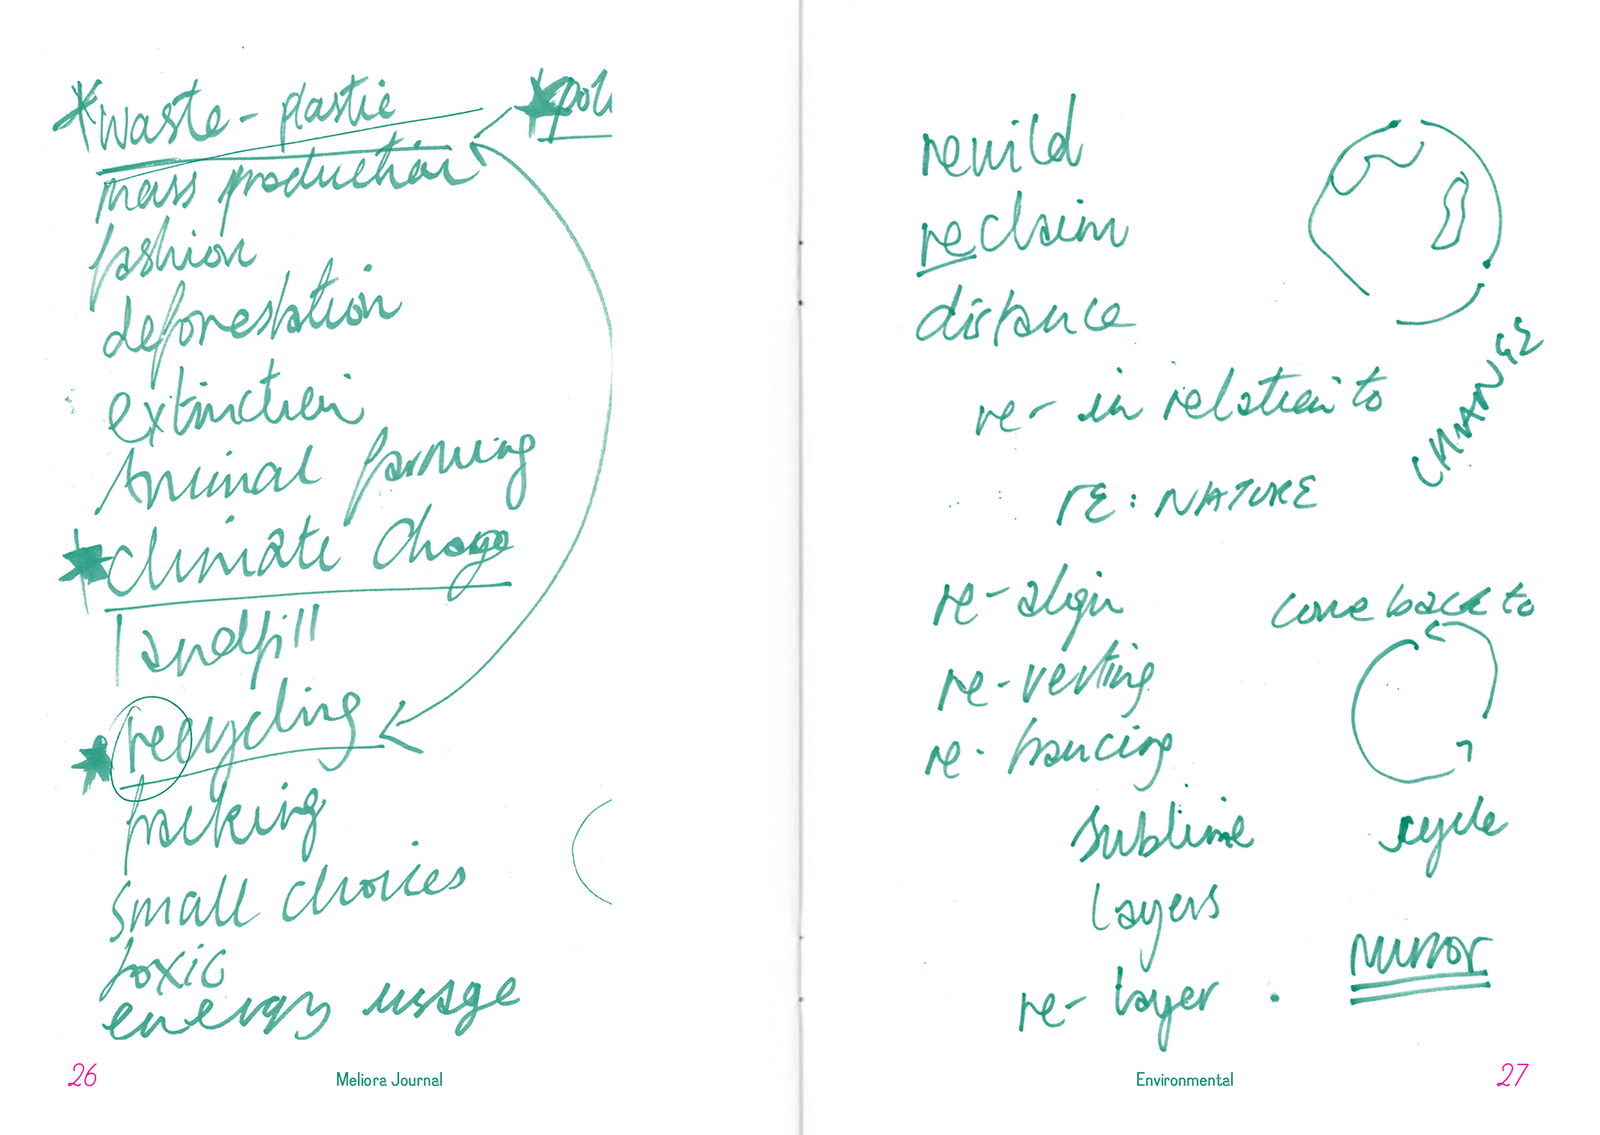 waste - plastic
mass production
fashion
deforestation
extinction
Animal farming
climate change
landfill
recycling
fracking
small choices
toxic
energy usage
26
Meliora Journal
rewild
reclaim
distance
re- in relation to
CHANGE
rE: NATURE
re-align
come back to
re-verting
re-
sublime
cycle
layers
mirror
re-layer .
Environmental
27